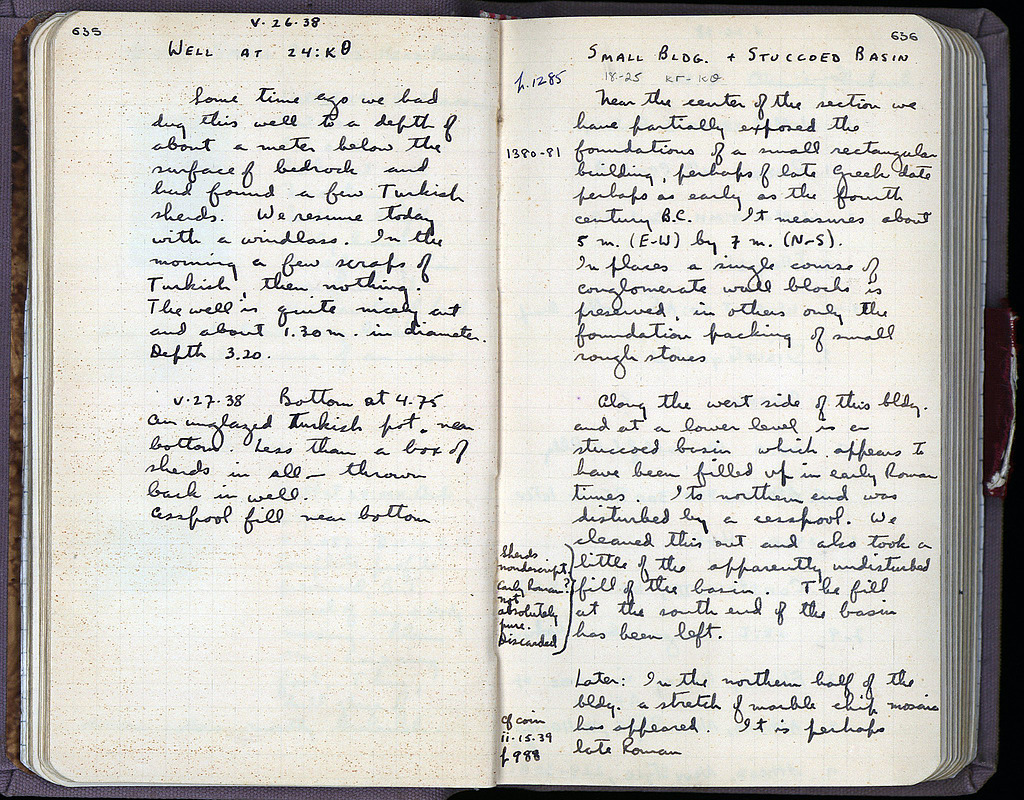 635
V·26·38
WELL AT 24:ΚΘ
Some time ago we had
dug this well to a depth of
about a meter below the
surface of bedrock and
had found a few Turkish
sherds. We resume today
with a windlass. In the
morning a few scraps of
Turkish, then nothing.
The well is quite nicely cut
and about 1.30 m. in diameter.
Depth 3.20.
V·27·38 Bottom at 4.75
An unglazed Turkish pot, near
bottom. Less than a box of
sherds in all — thrown
back in well.
Cesspool fill near bottom
636
SMALL BLDG. + STUCCOED BASIN
18-25 ΚΓ-ΚΘ
p. 1285
Near the center of the section we
have partially exposed the
1380-81
foundations of a small rectangular
building, perhaps of late Greek date
perhaps as early as the fourth
century B.C. It measures about
5 m. (E-W) by 7 m. (N-S).
In places a single course of
conglomerate wall blocks is
preserved, in others only the
foundation packing of small
rough stones
Along the west side of this bldg.
and at a lower level is a
stuccoed basin which appears to
have been filled up in early Roman
times. Its northern end was
disturbed by a cesspool. We
cleaned this out and also took a
little of the apparently undisturbed
fill of the basin. The fill
at the south end of the basin
has been left.
Sherds
nondescript.
Early Roman?
not
absolutely
pure.
Discarded
Later: In the northern half of the
bldg. a stretch of marble chip mosaic
has appeared. It is perhaps
late Roman
cf coin
ii·15·39
p 988